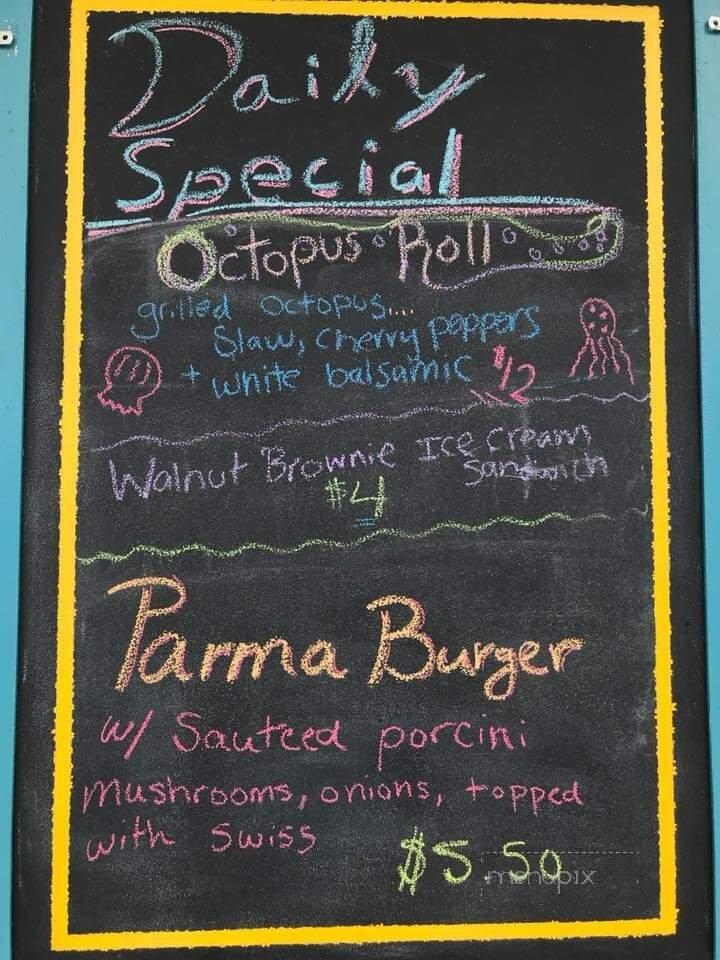 Daily
Special
Octopus Roll
grilled octopus...
slaw, cherry peppers
+ white balsamic $12
Walnut Brownie Ice cream
sandwich
$4
Parma Burger
w/ Sauteed porcini
mushrooms, onions, topped
with swiss
$5.50
menupix